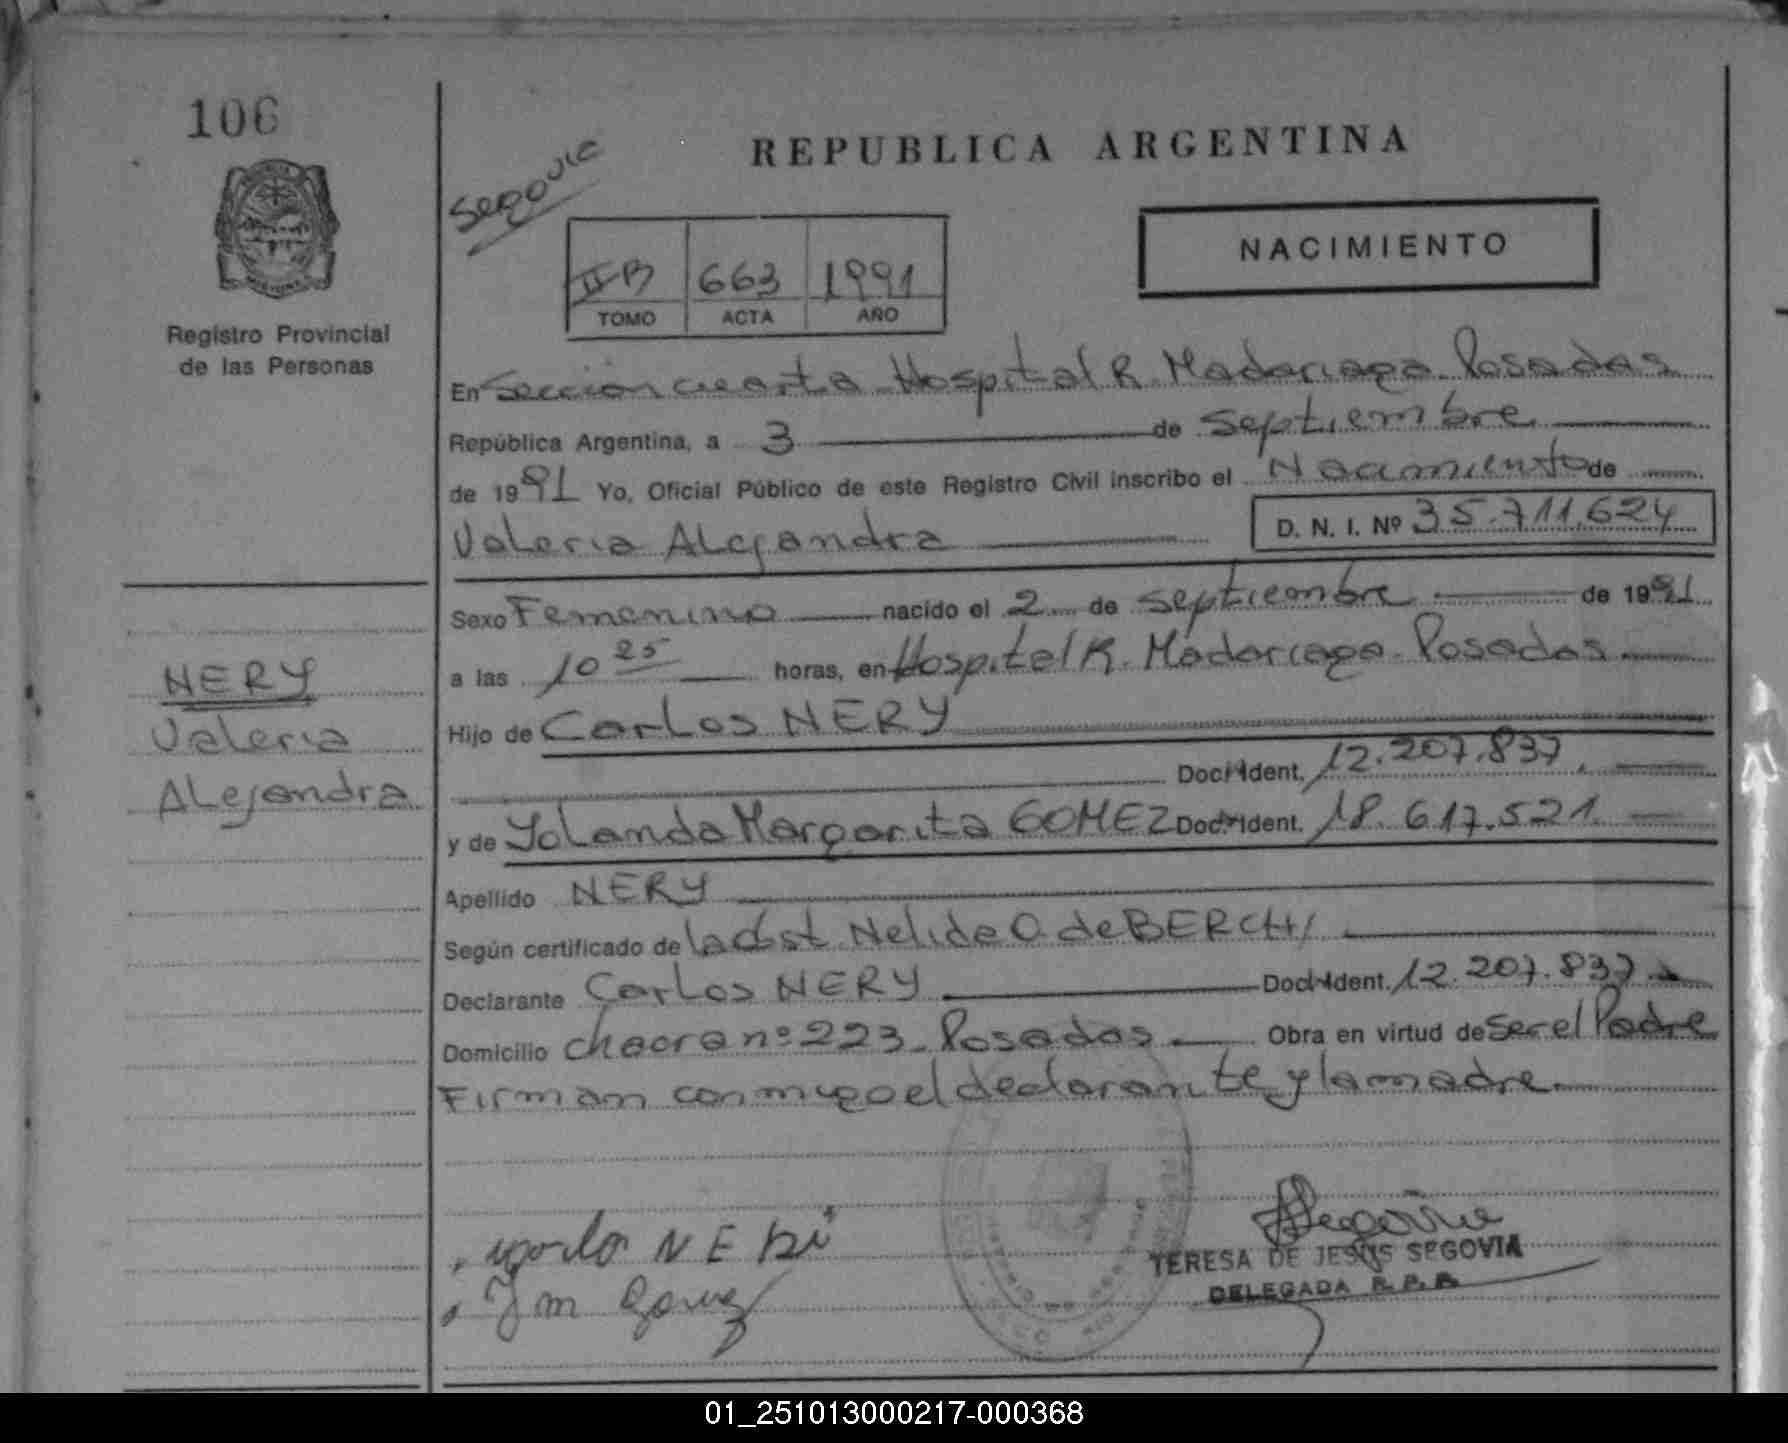 106
Registro Provincial
de las Personas
NERY
Valeria
Alejandra
Segovia
REPUBLICA ARGENTINA
NACIMIENTO
II-B 663 1991
TOMO ACTA AÑO
En Seccion cuarta Hospital R. Madariaga Posadas
República Argentina, a 3 de septiembre
de 1991 Yo, Oficial Público de este Registro Civil inscribo el Nacimiento de
Valeria Alejandra D. N. I. Nº 35.711.624
Sexo Femenino nacido el 2 de septiembre de 1991
a las 10 25 horas, en Hospital R. Madariaga Posadas
Hijo de Carlos NERY
Doc. Ident. 12.207.837
y de Yolanda Margarita GOMEZ Doc. Ident. 18.617.521
Apellido NERY
Según certificado de la obst Nelida O. de BERCHI
Declarante Carlos NERY Doc. Ident. 12.207.837
Domicilio chacra nº 223 Posadas Obra en virtud de ser el Padre
Firman conmigo el declarante y la madre
NERI
Y m Gomez
TERESA DE JESUS SEGOVIA
DELEGADA R. P. P.
01_251013000217-000368